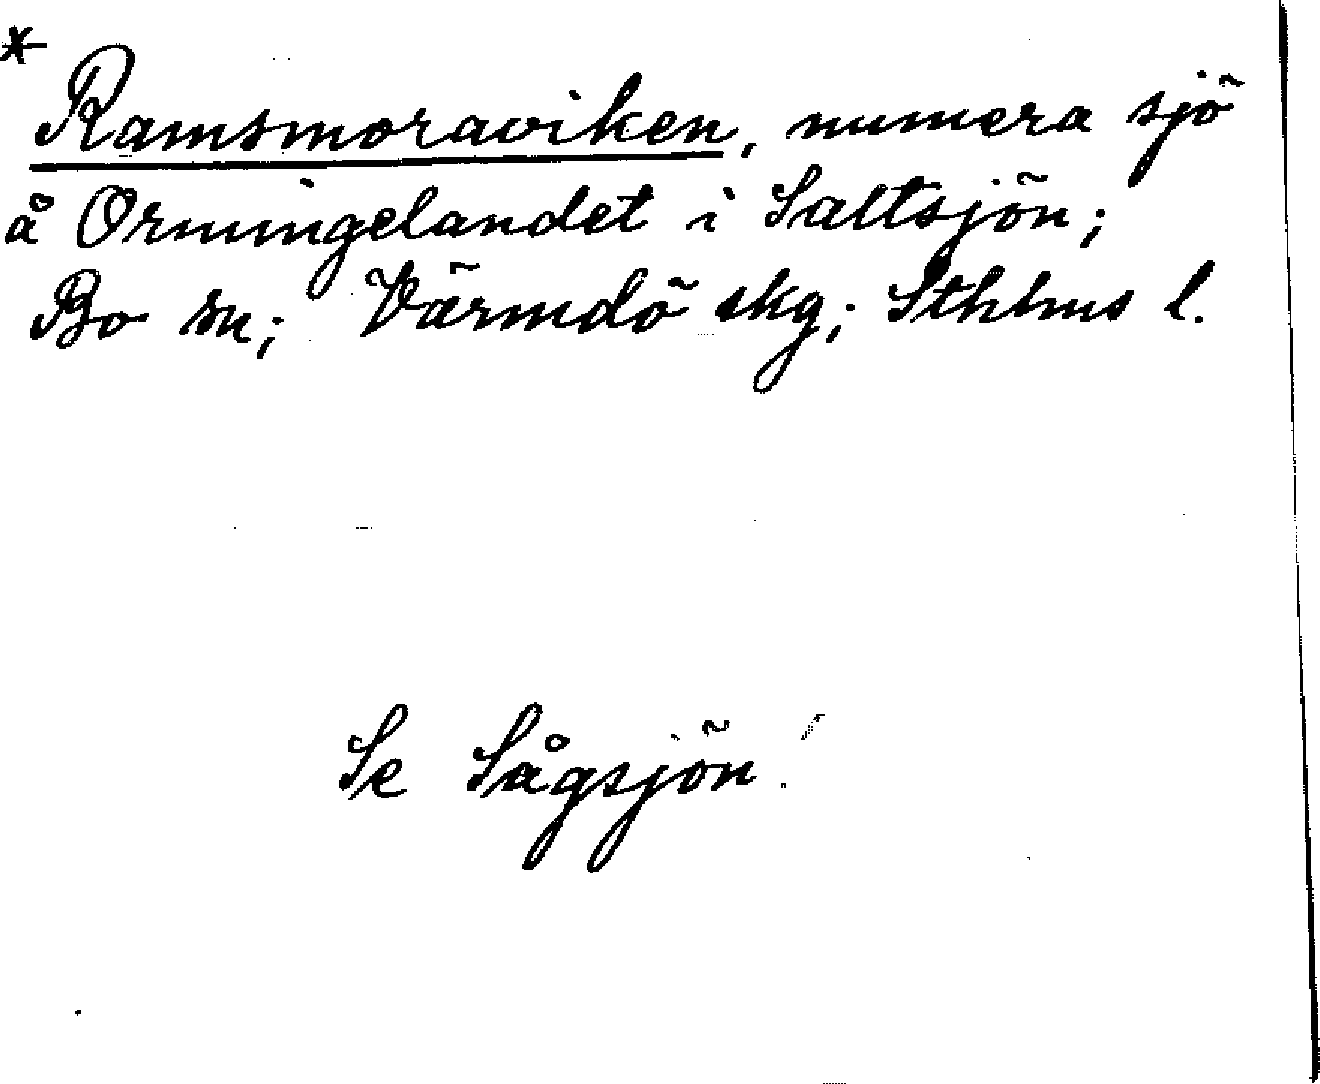 *
Ramsmoraviken, numera sjö
å Ormingelandet i Saltsjön;
Bo sn; Värmdö skg; Sthlms l.
Se Sågsjön!